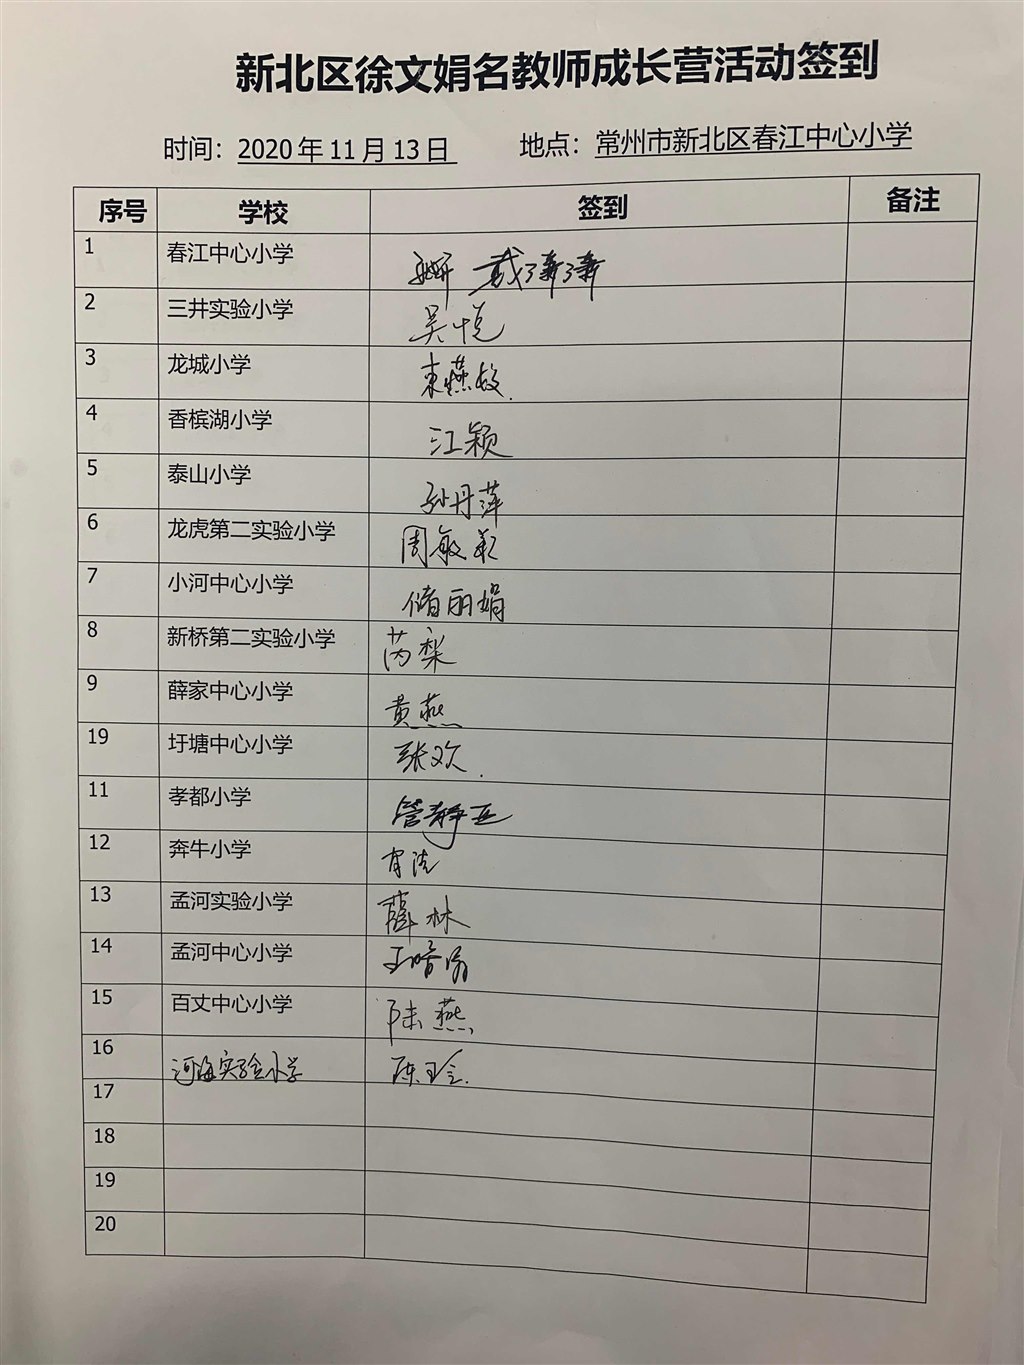 新北区徐文娟名教师成长营活动签到
时间：2020年11月13日 地点：常州市新北区春江中心小学
序号 学校 签到 备注
1 春江中心小学 戴
2 三井实验小学 吴悦
3 龙城小学 束燕
4 香槟湖小学 江颖
5 泰山小学 孙丹萍
6 龙虎第二实验小学 周敏
7 小河中心小学 储丽娟
8 新桥第二实验小学 芮梨
9 薛家中心小学 黄燕
19 圩塘中心小学 张欢
11 孝都小学 管静亚
12 奔牛小学 洁
13 孟河实验小学 薛林
14 孟河中心小学 王
15 百丈中心小学 陆燕
16 河海实验小学 陈玲
17
18
19
20